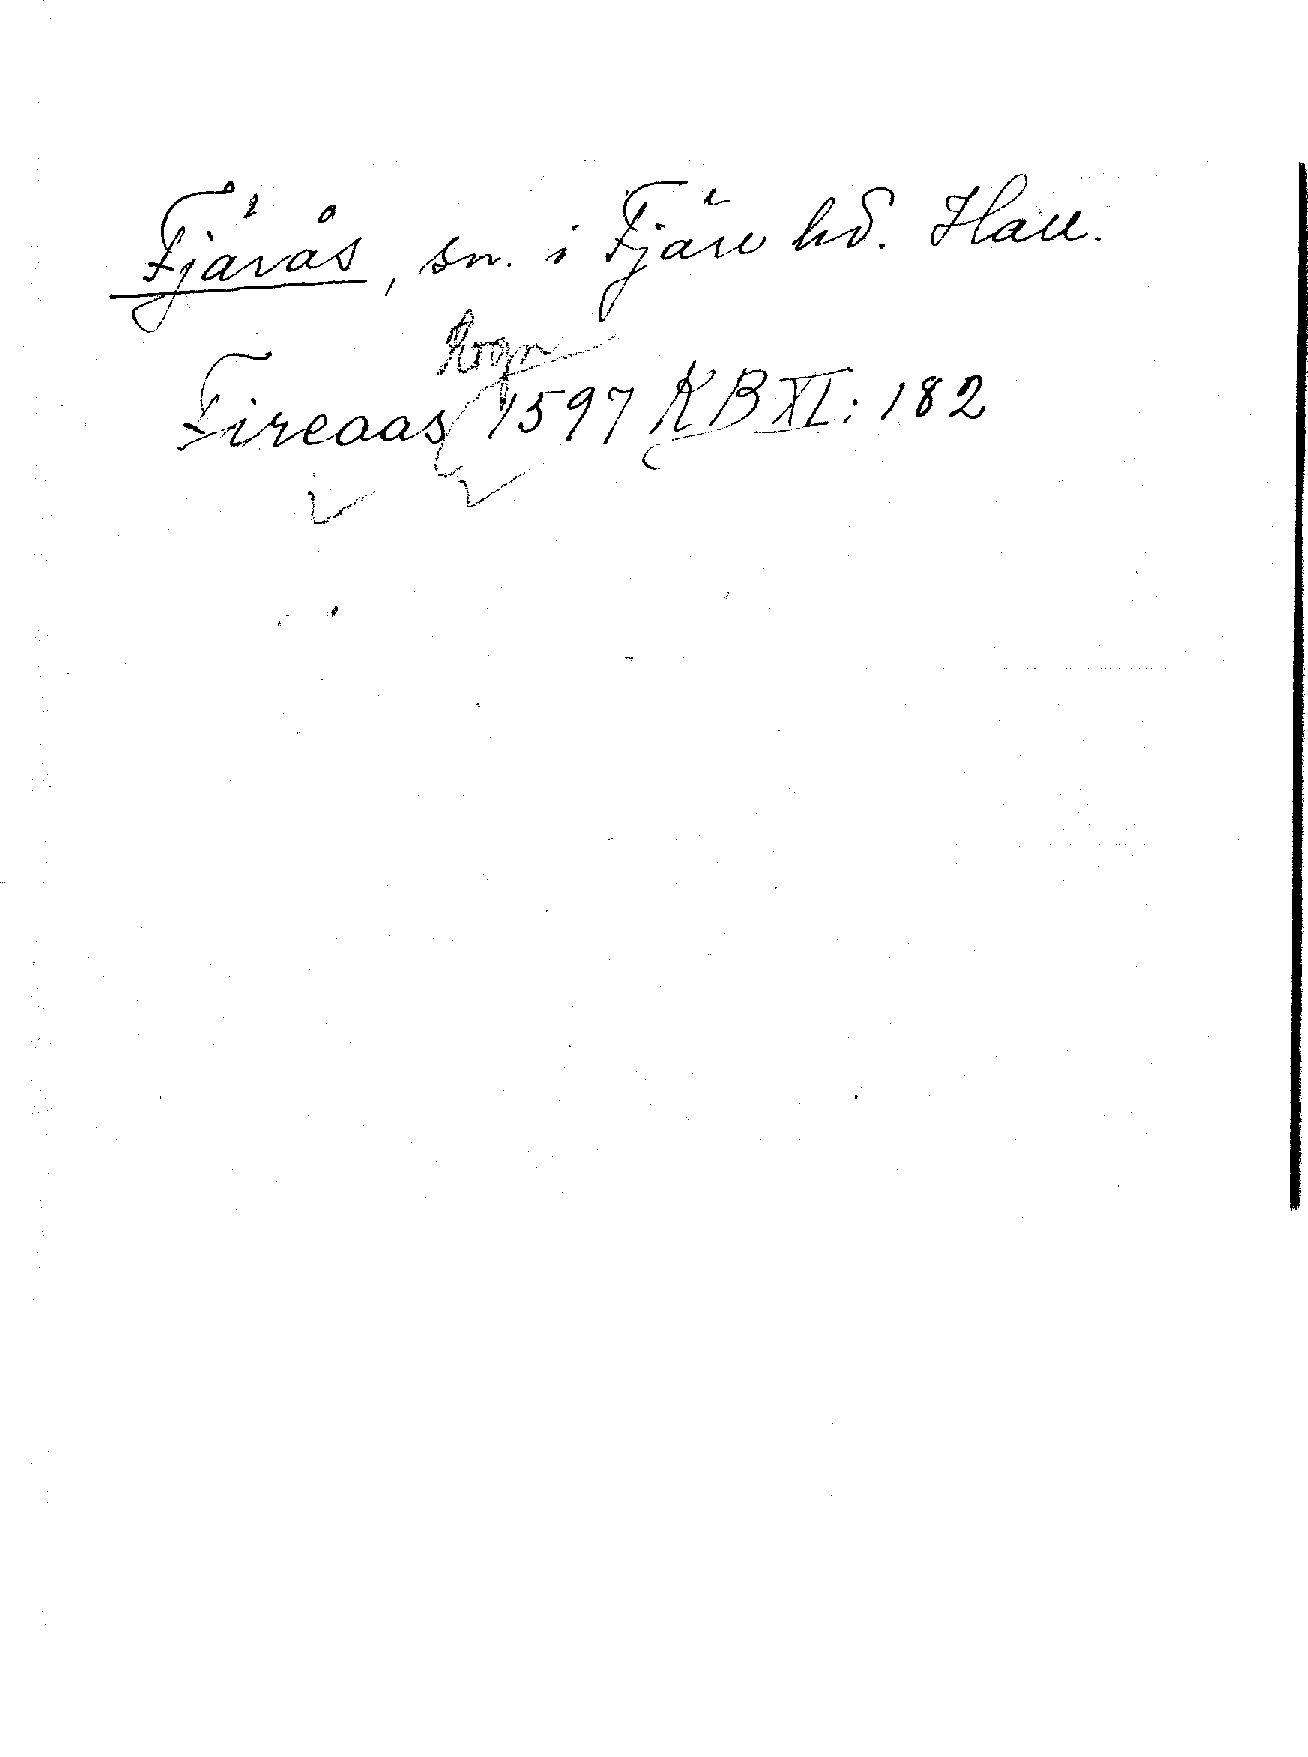 Fjärås, sn. i Fjäre hd. Hall.
Sogn
Fireaas 1597 KB XI: 182